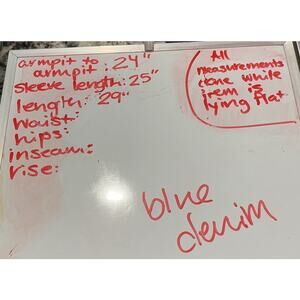 armpit to
armpit: 24"
sleeve length: 25"
length: 29"
waist:
hips:
inseam:
rise:
All
measurements
done while
item is
lying flat
blue
denim